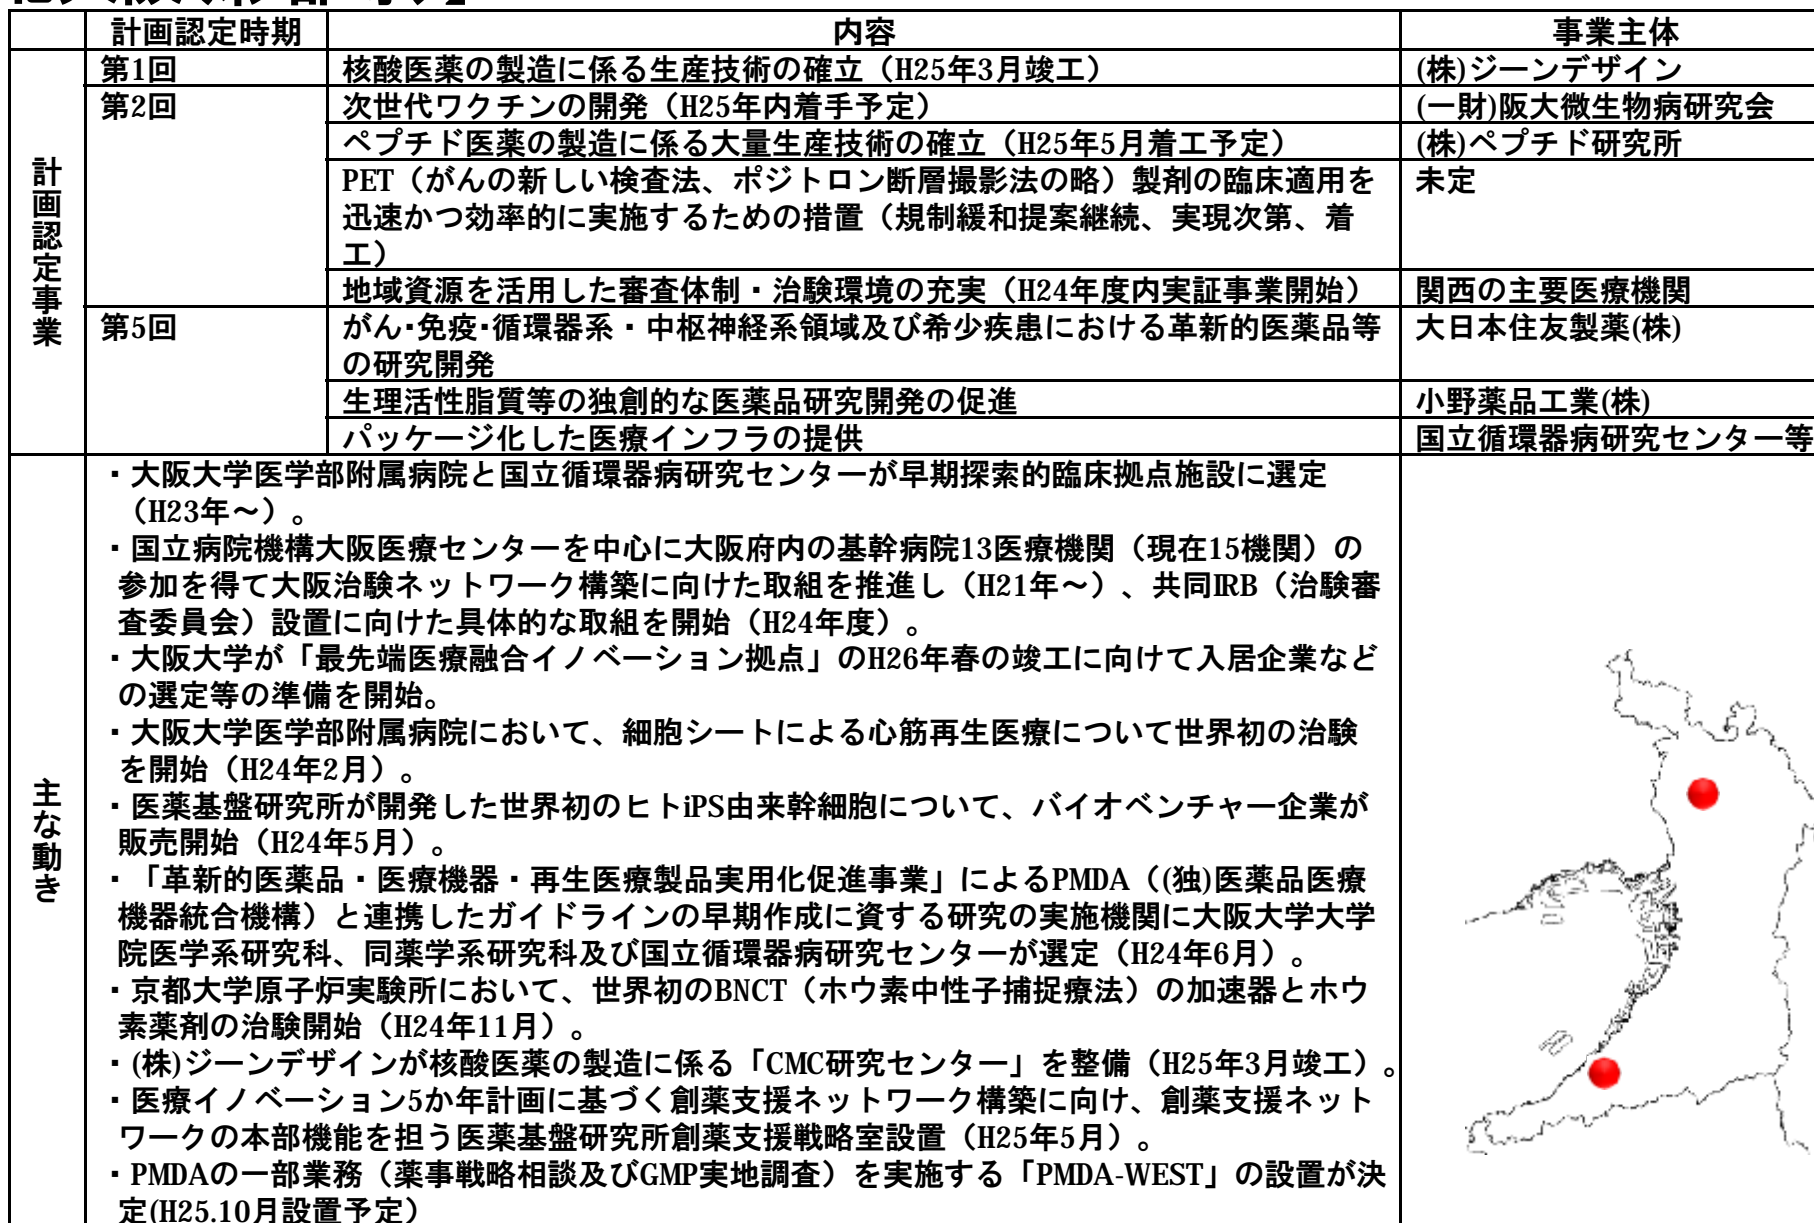 計画認定時期 内容 事業主体
計画認定事業
第1回 核酸医薬の製造に係る生産技術の確立（H25年3月竣工） (株)ジーンデザイン
第2回 次世代ワクチンの開発（H25年内着手予定） (一財)阪大微生物病研究会
ペプチド医薬の製造に係る大量生産技術の確立（H25年5月着工予定） (株)ペプチド研究所
PET（がんの新しい検査法、ポジトロン断層撮影法の略）製剤の臨床適用を 未定
迅速かつ効率的に実施するための措置（規制緩和提案継続、実現次第、着
工）
地域資源を活用した審査体制・治験環境の充実（H24年度内実証事業開始） 関西の主要医療機関
第5回 がん・免疫・循環器系・中枢神経系領域及び希少疾患における革新的医薬品等 大日本住友製薬(株)
の研究開発
生理活性脂質等の独創的な医薬品研究開発の促進 小野薬品工業(株)
パッケージ化した医療インフラの提供 国立循環器病研究センター等
主な動き
・大阪大学医学部附属病院と国立循環器病研究センターが早期探索的臨床拠点施設に選定
（H23年～）。
・国立病院機構大阪医療センターを中心に大阪府内の基幹病院13医療機関（現在15機関）の
参加を得て大阪治験ネットワーク構築に向けた取組を推進し（H21年～）、共同IRB（治験審
査委員会）設置に向けた具体的な取組を開始（H24年度）。
・大阪大学が「最先端医療融合イノベーション拠点」のH26年春の竣工に向けて入居企業など
の選定等の準備を開始。
・大阪大学医学部附属病院において、細胞シートによる心筋再生医療について世界初の治験
を開始（H24年2月）。
・医薬基盤研究所が開発した世界初のヒトiPS由来幹細胞について、バイオベンチャー企業が
販売開始（H24年5月）。
・「革新的医薬品・医療機器・再生医療製品実用化促進事業」によるPMDA（(独)医薬品医療
機器統合機構）と連携したガイドラインの早期作成に資する研究の実施機関に大阪大学大学
院医学系研究科、同薬学系研究科及び国立循環器病研究センターが選定（H24年6月）。
・京都大学原子炉実験所において、世界初のBNCT（ホウ素中性子捕捉療法）の加速器とホウ
素薬剤の治験開始（H24年11月）。
・(株)ジーンデザインが核酸医薬の製造に係る「CMC研究センター」を整備（H25年3月竣工）。
・医療イノベーション5か年計画に基づく創薬支援ネットワーク構築に向け、創薬支援ネット
ワークの本部機能を担う医薬基盤研究所創薬支援戦略室設置（H25年5月）。
・PMDAの一部業務（薬事戦略相談及びGMP実地調査）を実施する「PMDA-WEST」の設置が決
定(H25.10月設置予定）